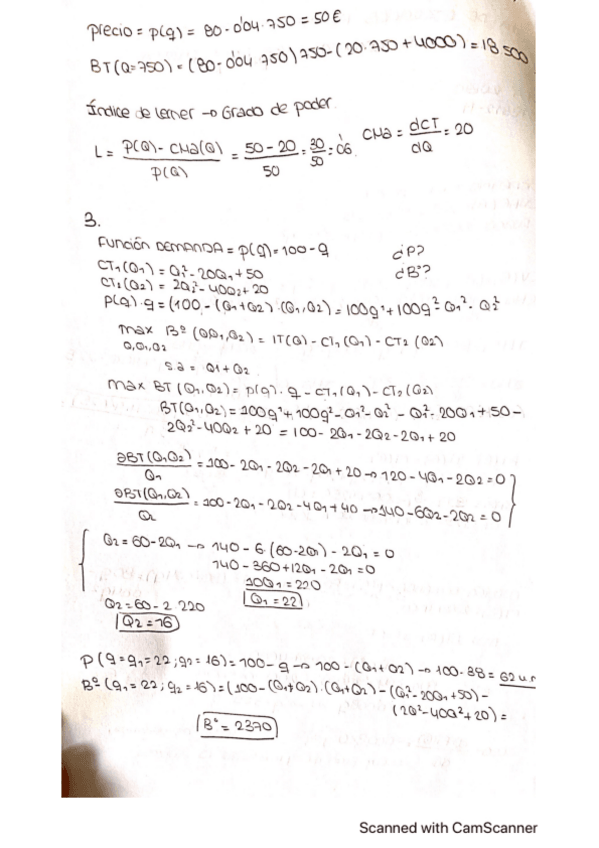 Precio = p(q) = 80 - 0'04 · 750 = 50€
BT(Q=750) = (80 - 0'04 · 750) 750 - (20 · 750 + 4000) = 18 500
Índice de lerner → Grado de poder.
L = P(Q) - CMa(Q) / P(Q) = 50 - 20 / 50 = 30 / 50 = 0'6 CMa = dCT / dQ = 20
3.
Función DEMANDA = p(q) = 100 - q ¿P?
CT₁(Q₁) = Q₁² - 20Q₁ + 50 ¿Bº?
CT₂(Q₂) = 2Q₂² - 40Q₂ + 20
P(q) · q = (100 - (Q₁+Q₂) · (Q₁, Q₂) = 100q¹ + 100q² - Q₁² - Q₂²
max Bº (Q,Q₁,Q₂) = IT(Q) - CT₁(Q₁) - CT₂(Q₂)
Q,Q₁,Q₂
s.a = Q₁ + Q₂
max BT (Q₁,Q₂) = p(q) · q - CT₁(Q₁) - CT₂(Q₂)
BT(Q₁,Q₂) = 100q¹ + 100q² - Q₁² - Q₂² - Q₁² - 20Q₁ + 50 -
2Q₂² - 40Q₂ + 20 = 100 - 2Q₁ - 2Q₂ - 2Q₁ + 20
∂BT(Q₁,Q₂) / Q₁ = 100 - 2Q₁ - 2Q₂ - 2Q₁ + 20 → 120 - 4Q₁ - 2Q₂ = 0
∂BT(Q₁,Q₂) / Q₂ = 100 - 2Q₁ - 2Q₂ - 4Q₁ + 40 → 140 - 6Q₂ - 2Q₂ = 0
Q₂ = 60 - 2Q₁ → 140 - 6 · (60 - 2Q₁) - 2Q₁ = 0
140 - 360 + 12Q₁ - 2Q₁ = 0
10Q₁ = 220
Q₂ = 60 - 2 · 220 Q₁ = 22
Q₂ = 16
P (q = q₁ = 22 ; q₂ = 16) = 100 - q → 100 - (Q₁ + Q₂) → 100 - 38 = 62 u.r
Bº (q₁ = 22 ; q₂ = 16) = (100 - (Q₁+Q₂) · (Q₁+Q₂) - (Q₁² - 20Q₁ + 50) -
(2Q² - 40Q² + 20) =
Bº = 2370
Scanned with CamScanner